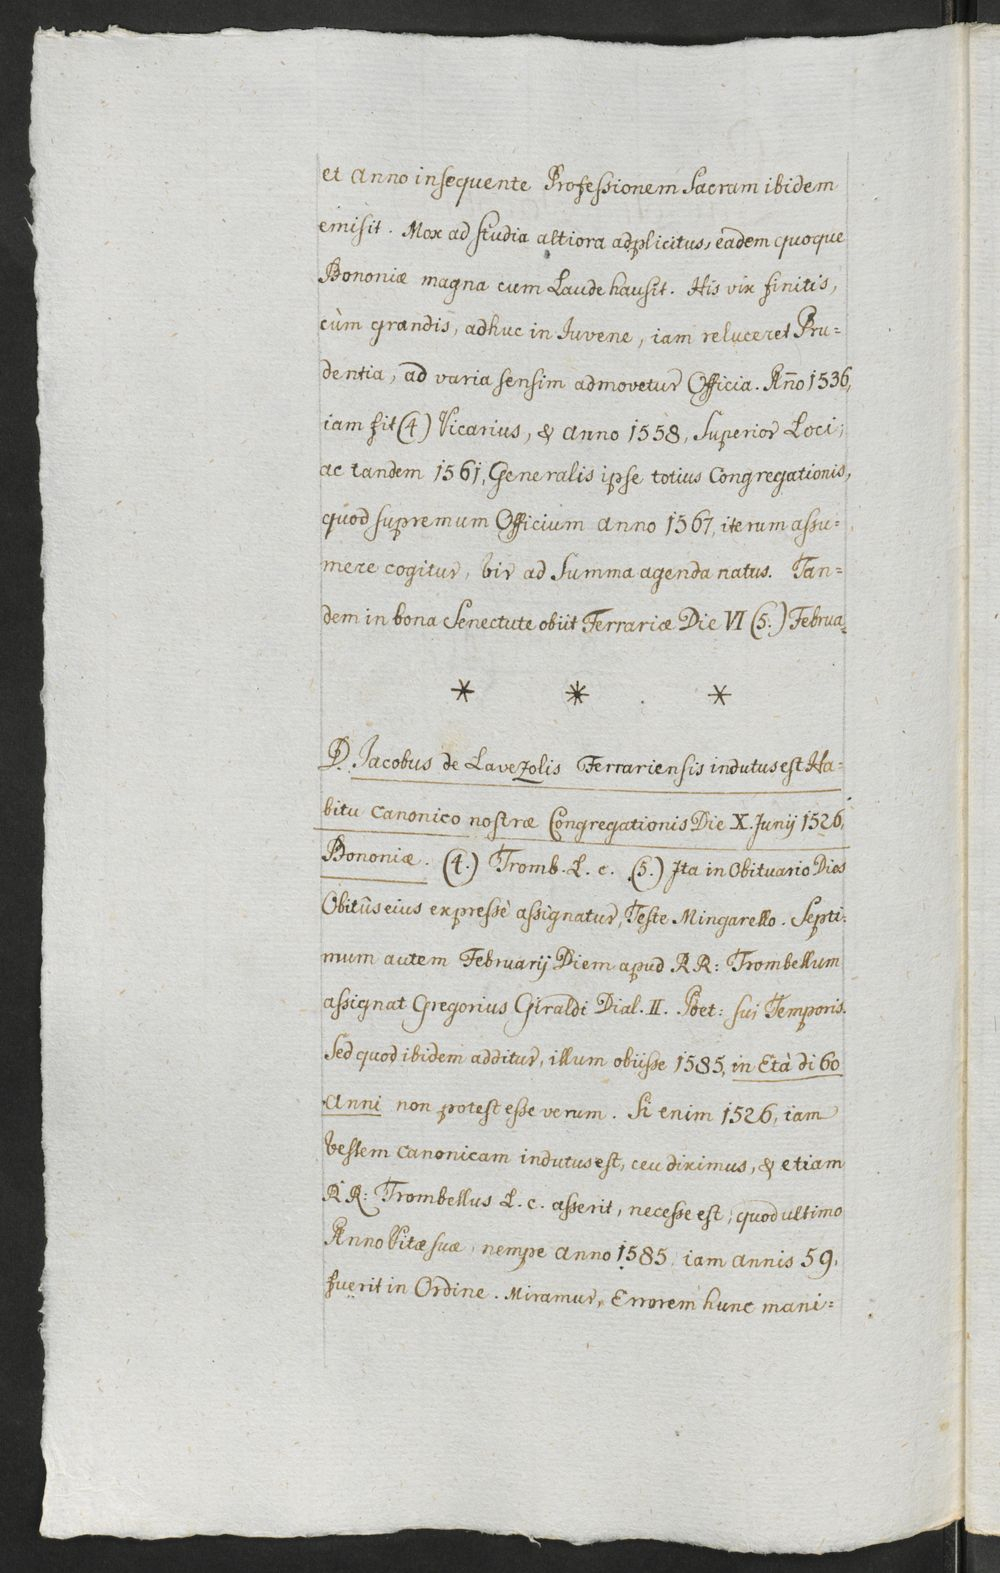 et anno insequente Professionem Sacram ibidem
emisit. Mox ad studia altiora adplicitus, eadem quoque
Bononiæ magna cum Laude hausit. His vix finitis,
cùm grandis, adhuc in Iuvene, iam reluceret Pru=
dentia, ad varia sensim admovetur Officia. Año 1536,
iam fit (4) Vicarius, & anno 1558, Superior Loci,
ac tandem 1561, Generalis ipse totius Congregationis,
quod supremum Officium anno 1567, iterum assu=
mere cogitur, vir ad Summa agenda natus. Tan=
dem in bona Senectute obiit Ferrariæ Die VI (5.) Februa=
* * *
D. Jacobus de Lavezolis Ferrariensis indutus est Ha=
bitu Canonico nostræ Congregationis Die X. Junij 1526,
Bononiæ. (4.) Tromb. L. c. (5.) Ita in Obituario Dies
Obitûs eius expressè assignatur, Teste Mingarello. Septi=
mum autem Februarij Diem apud RR: Trombellum
assignat Gregorius Giraldi Dial. II. Poet: sui Temporis.
Sed quod ibidem additur, illum obiisse 1585, in Età di 60
Anni non potest esse verum. Si enim 1526, iam
vestem Canonicam indutus est, ceu diximus, & etiam
RR: Trombellus L. c. asserit, necesse est, quod ultimo
Anno Vitæ suæ, nempe anno 1585, iam annis 59,
fuerit in Ordine. Miramur, Errorem hunc mani=